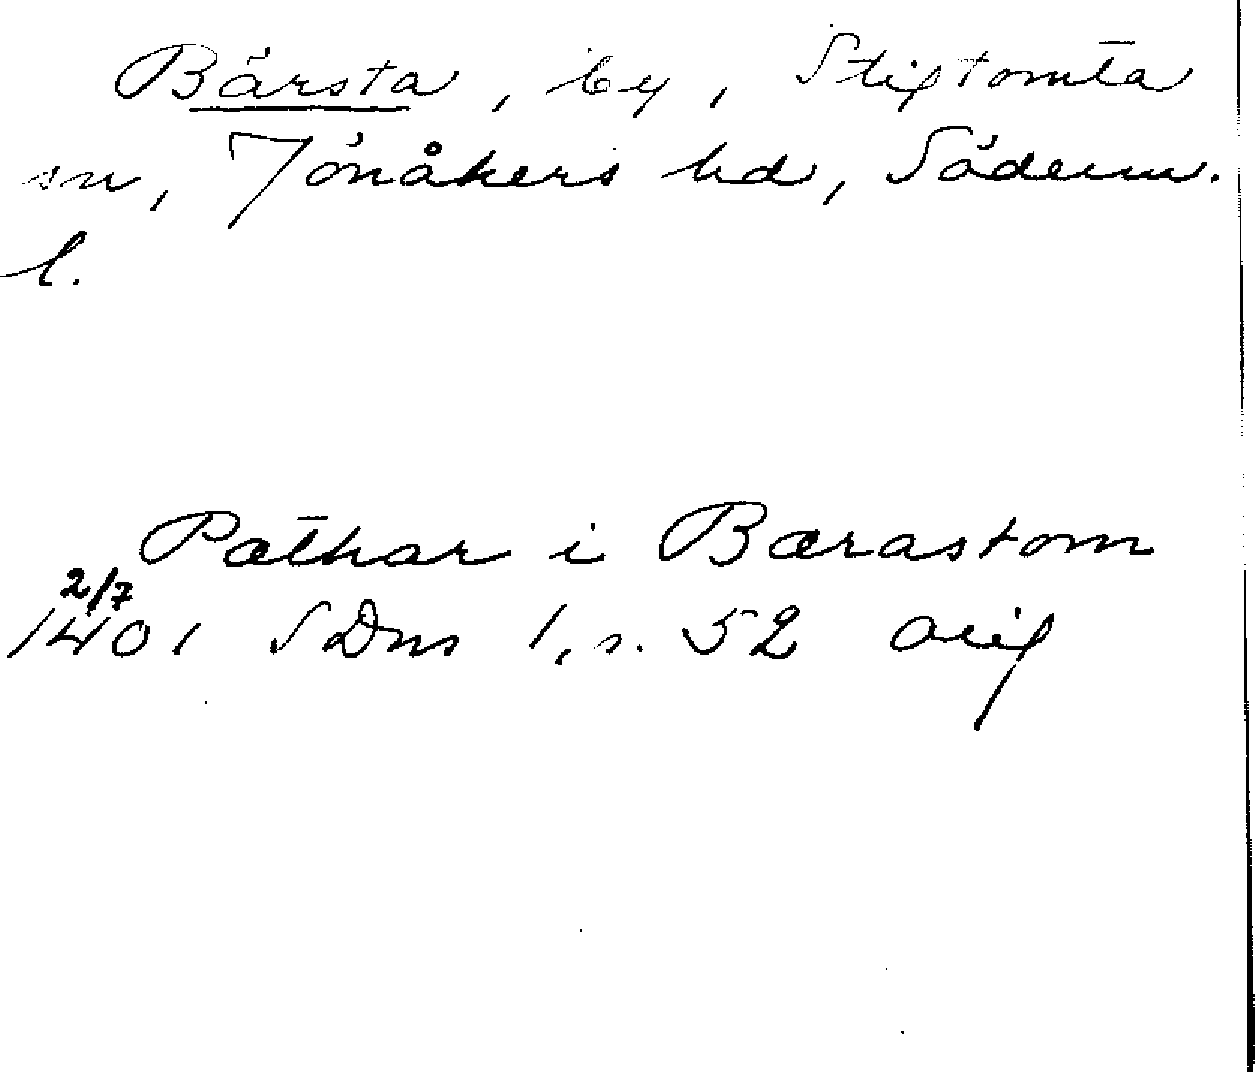 Bärsta, by, Stigtomta
sn, Jönåkers hd, Söderm.
l.
Pæthar i Bærastom
2/7
1401 SDns 1, s. 52 orig